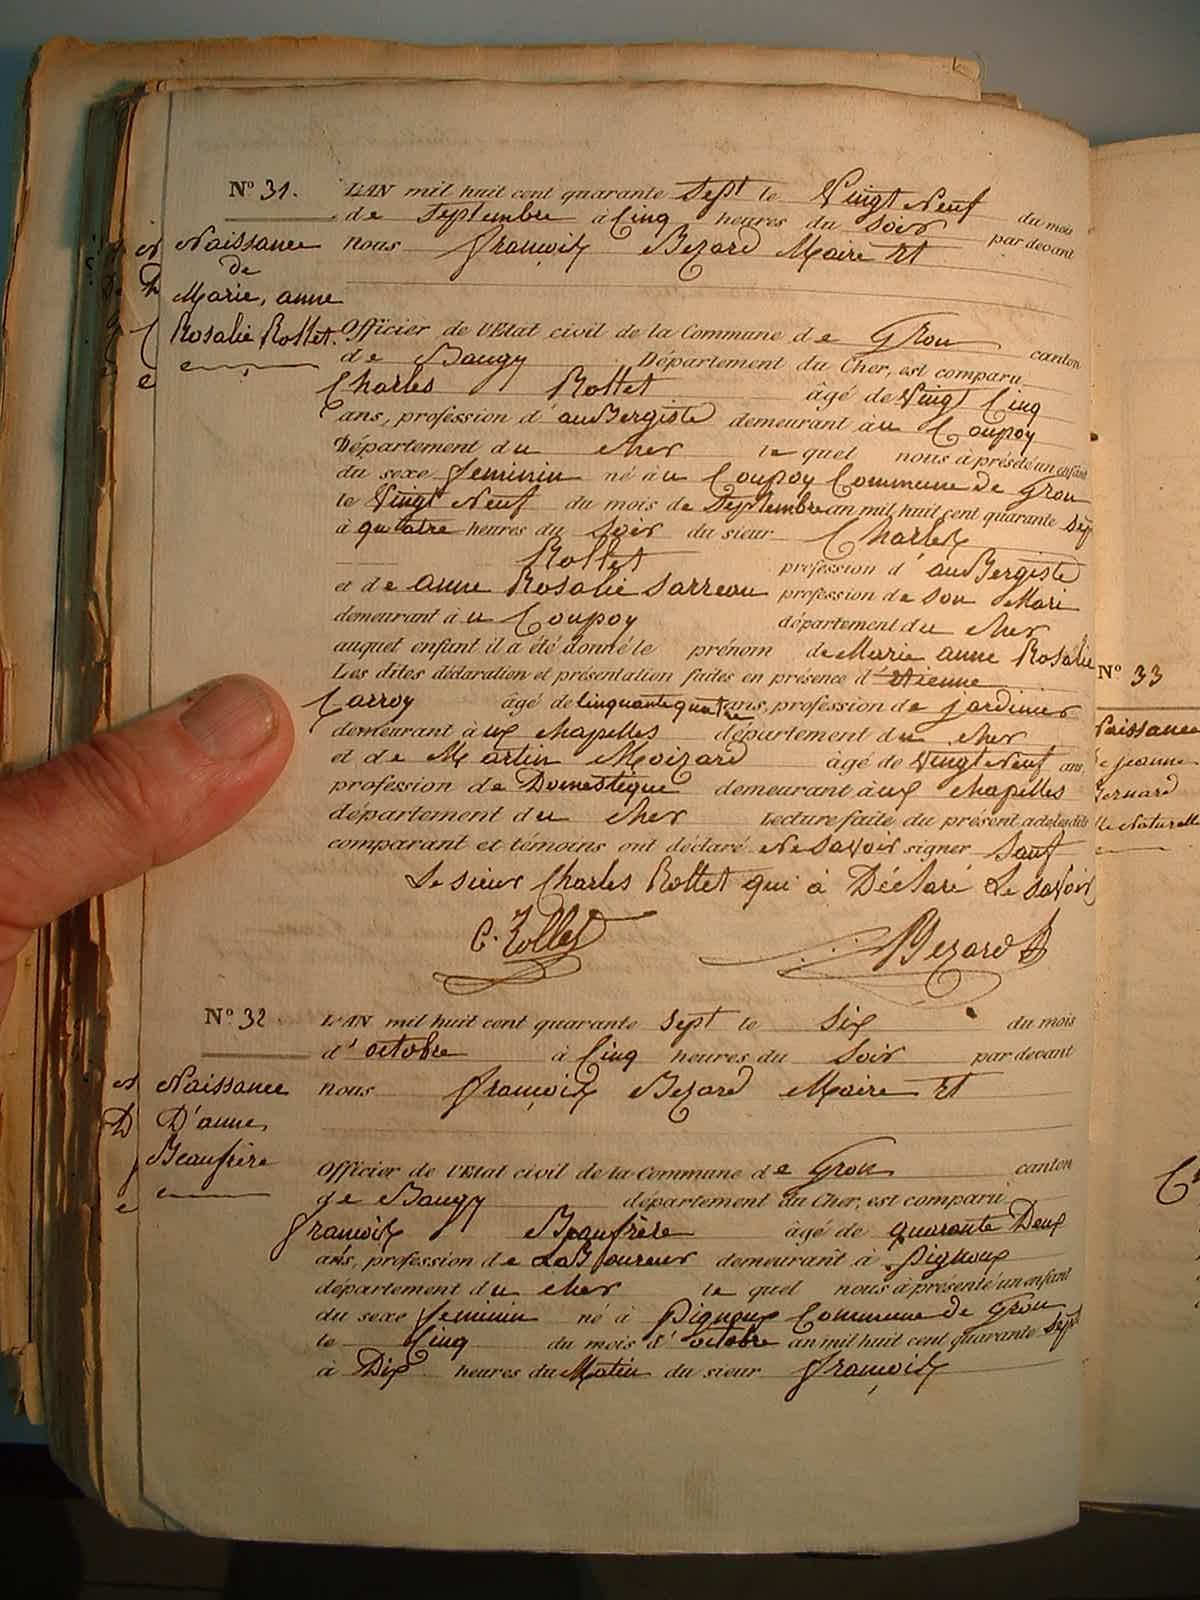 Nº 31.
Naissance
de
Marie, anne
Rosalie Rollet.
L'AN mil huit cent quarante Sept le Vingt Neuf du mois
de Septembre à Cinq heures du Soir par devant
nous François Bezard Maire Et
Officier de l'Etat civil de la Commune de Gron canton
de Baugy Département du Cher, est comparu
Charles Rollet âgé de Vingt Cinq
ans, profession d'auBergiste demeurant àu Coupoy
Département du cher le quel nous à présété un enfant
du sexe feminin né àu Coupoy Commune de Gron
le Vingt Neuf du mois de Septembre an mil huit cent quarante Sept
à quatre heures du Soir du sieur Charles
Rollet profession d'auBergiste
et de anne Rosalie Sarreau profession de Son Mari
demeurant àu Coupoy département du cher
auquel enfant il a été donné le prénom de Marie anne Rosalie
Les dites déclaration et présentation faites en présence d'Etienne
Carroy âgé de Cinquante quatre ans, profession de jardinier
demeurant àux chapelles département du cher
et de Martin Moizard âgé de Vingt Neuf ans,
profession de Domestique demeurant àux chapelles
département du cher Lecture faite du présent acte les dits
comparant et témoins ont déclaré Ne Savoir signer Sauf
Le Sieur Charles Rollet qui à Déclaré Le Savoir
C. Rollet Bezard
Nº 32
Naissance
D'anne,
Beaufrère
L'AN mil huit cent quarante Sept le Six du mois
d'octobre à Cinq heures du Soir par devant
nous François Bezard Maire Et
Officier de l'Etat civil de la Commune de Gron canton
de Baugy département du Cher, est comparu
François Beaufrère âgé de quarante Deux
ans, profession de LaBoureur demeurant à Pignoux
département du cher le quel nous à présenté un enfant
du sexe feminin né à Pignoux Commune de Gron
le Cinq du mois d'octobre an mil huit cent quarante Sept
à Dix heures du Matin du sieur François
Nº 33
Naissance
De jeanne
Bernard
lle Naturelle